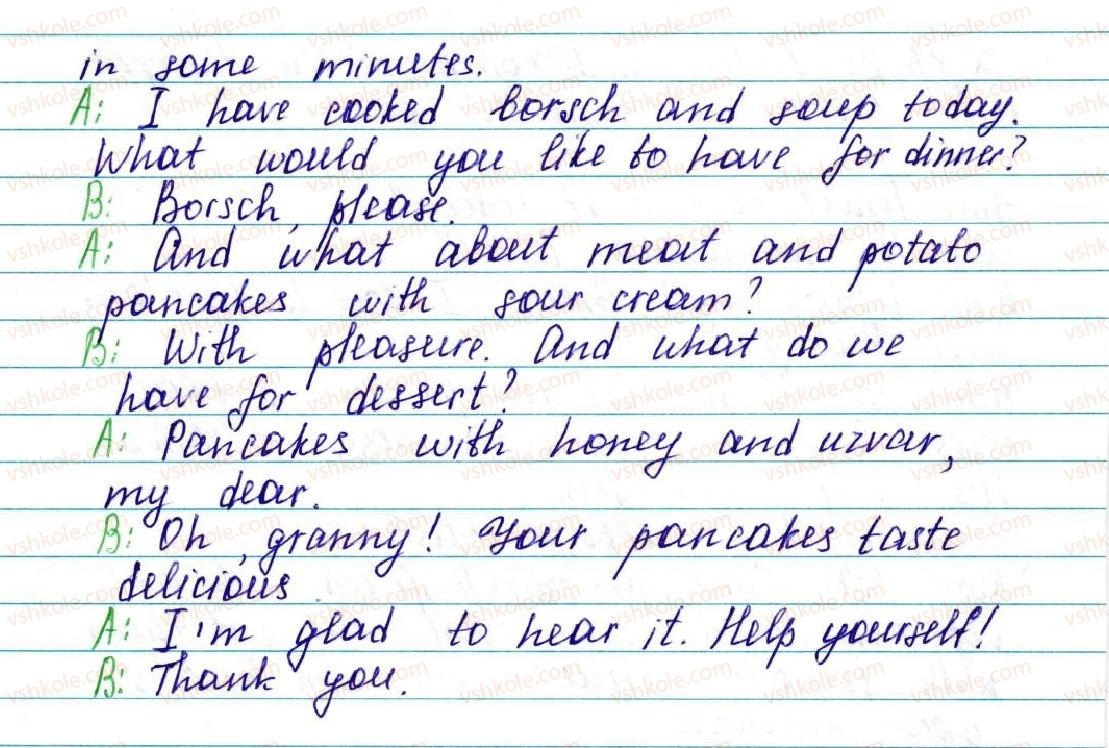 in some minutes.
A: I have cooked borsch and soup today.
What would you like to have for dinner?
B: Borsch, please.
A: And what about meat and potato
pancakes with sour cream?
B: With pleasure. And what do we
have for dessert?
A: Pancakes with honey and uzvar,
my dear.
B: Oh, granny! Your pancakes taste
delicious.
A: I'm glad to hear it. Help yourself!
B: Thank you.
vshkole.com